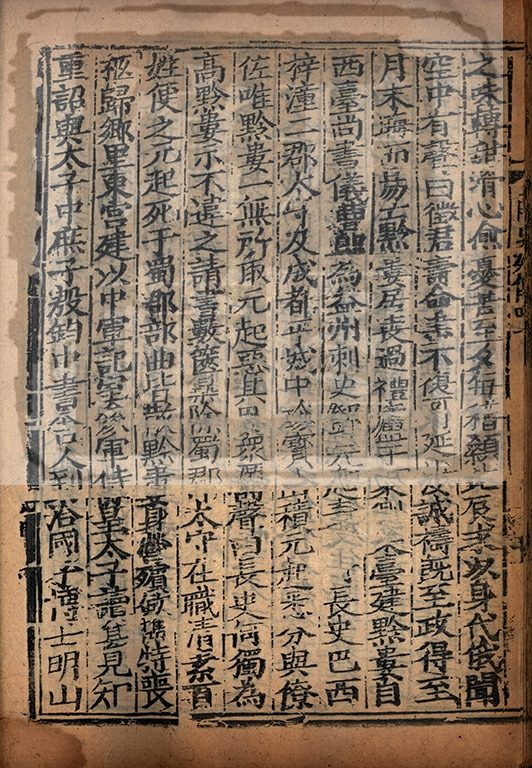 之味轉甜滑心愈憂苦至夕每稽顙北辰求以身代俄聞
空中有聲曰徵君壽命盡不復可延汝誠禱既至政得至
月末晦而易亡黔婁居喪過禮廬于冢側臺建黔婁自
西臺尚書儀曹郎為益州刺史鄧元起表長史巴西
梓潼二郡太守及成都平城中珍寶山積元起悉分與僚
佐唯黔婁一無所取元起惡其異眾厲聲曰長史何獨為
高黔婁示不違之請書數篋尋除蜀郡太守在職清素百
姓便之元起死于蜀郡部曲皆散黔婁身營殯斂攜持喪
柩歸鄉里東宮建以中軍記室參軍侍皇太子讀甚見知
重詔與太子中庶子殷鈞中書舍人到洽國子博士明山